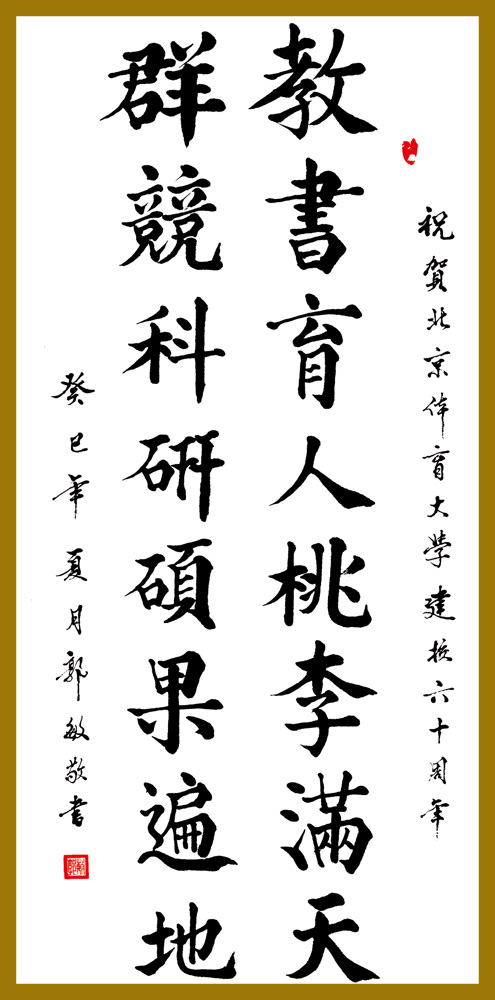 祝賀北京体育大學建校六十周年
教書育人桃李滿天
群競科研碩果遍地
癸巳年夏月郭敏敬书